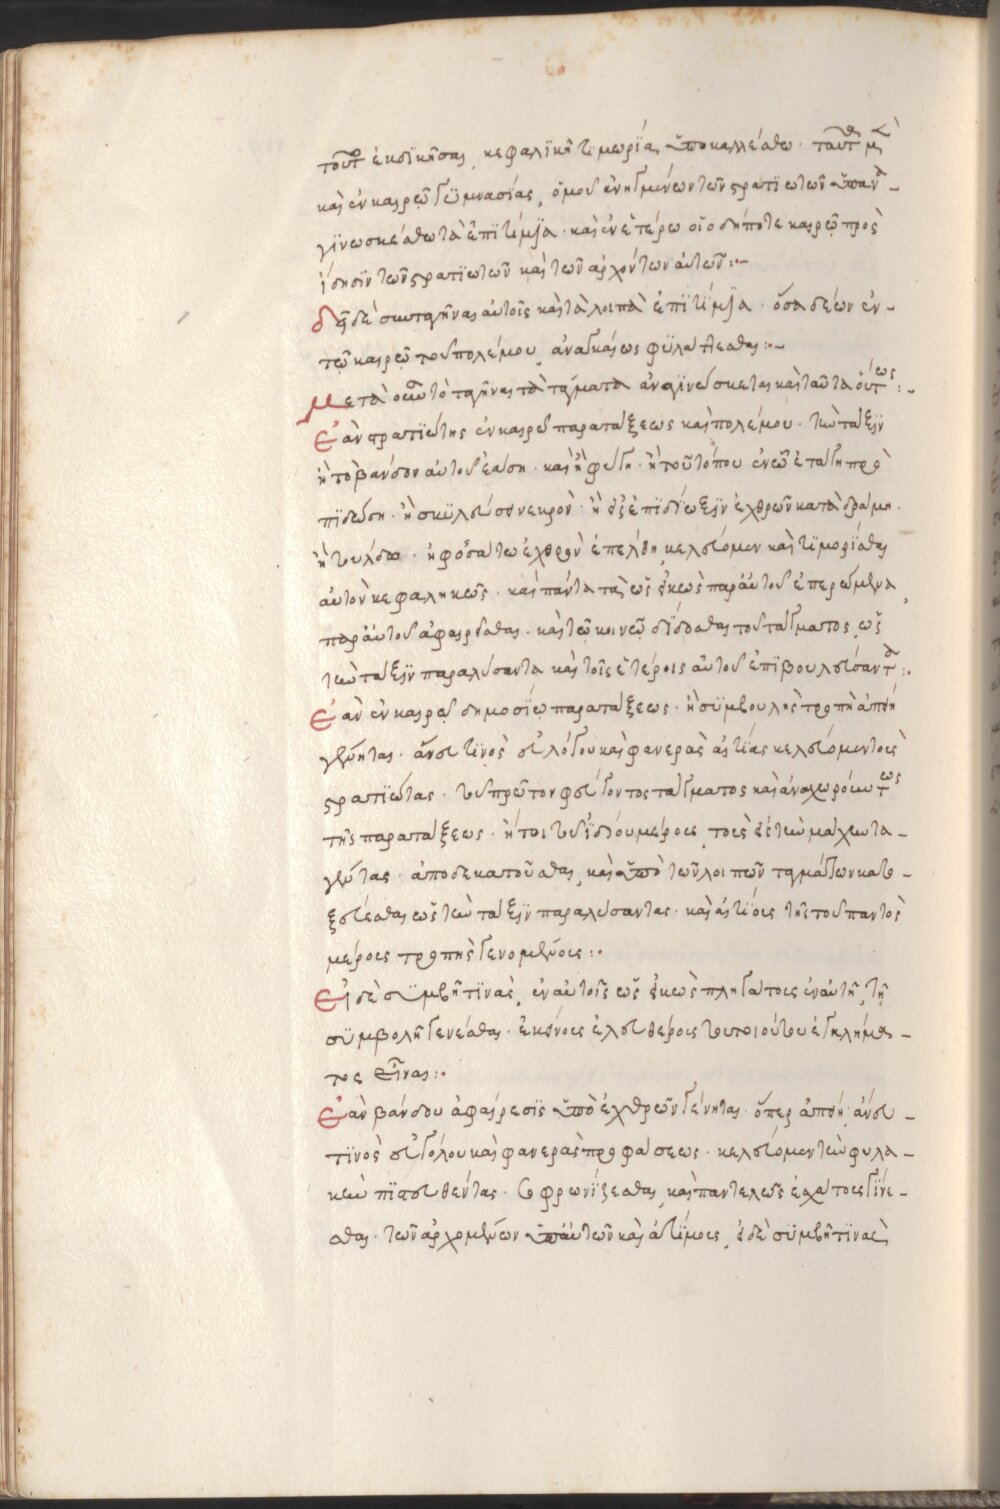 τοῦτο ἐκδϊκῆσαι, κεφαλϊκῆ τιμωρία ὑποκαλλέσθω. ταῦτα μ
καὶ ἐν καιρῶ γϋμνασίας, ὁμοῦ ἐνηγμένων τῶν στρατϊωτῶν ὑπαν-
γϊνωσκέσθω τὰ ἐπϊτίμϊα. καὶ ἐν ἑτέρω οἱοδήποτε καιρῶ πρὸς
ἴδησϊν τῶν στρατϊωτῶν καὶ τῶν ἀρχόντων αὐτῶν:-
δεῖ δὲ συνταγῆναι αὐτοῖς καὶ τὰ λοιπὰ ἐπϊτίμϊα. ὅσα δέων ἐν-
τῶ καιρῶ τοῦ πολέμου, ἀναγκαίως φϋλάττεσθαι:-
Μετὰ τὸ ταγῆναι τὰ τάγματα ἀναγϊνώσκεται καὶ ταῦτα οὕτως:-
Ἐὰν στρατϊώτης ἐν καιρῶ παρατάξεως καὶ πολέμου. τὴν τάξϊν
ἢ τὸ βάνδον αὐτοῦ ἐάση. καὶ ἢ φύγη. ἢ τοῦ τόπου ἐν ὧ ἐτάγη προ
πϊδώση. ἢ σκϋλεύση νεκρὸν. ἢ εἰς ἐπϊδίωξϊν ἐχθρῶν καταδράμη.
ἢ τούλδω. ἢ φοσάτω ἐχθρὸν ἐπέλθη, κελεύομεν καὶ τϊμορϊσθαι
αὐτὸν κεφαληκῶς. καὶ πάντα τὰ ὡς εἰκὼς παρ' αὐτοῦ ἐπερώμενα,
παρ' αὐτοῦ ἀφαιρῆσθαι. καὶ τῶ κοινῶ δίδοσθαι τοῦ τάγματος, ὡς
τὴν τάξϊν παραλύσαντα καὶ τοῖς ἑτέροις αὐτοῦ ἐπϊβουλεύσαντα:.
Ἐὰν ἐν καιρῶ δημοσίω παρατάξεως. ἢ σϋμβουλῆς τροπὴ ἀπείη
γένηται. ἄνευ τϊνὸς εὐλόγου καὶ φανερᾶς αἰτίας κελεύομεν τοὺς
στρατϊώτας. τοῦ πρώτου φεύγοντος τάγματος καὶ ἀναχωροῦντως
τῆς παρατάξεως. ἤτοι τοῦ ἰδίου μέρους, τοὺς εἰς τὴν μάχην τα-
γέντας. ἀποδεκατοῦσθαι, καὶ ὑπὸ τῶν λοιπῶν ταγμάτων κατο-
ξεύεσθαι ὡς τὴν τάξϊν παραλύσαντας. καὶ αἰτίους τῆς τοῦ παντὸς
μέρους τροπῆς γενομένους:.
Εἰ δὲ σϋμβῆ τϊνὰς, ἐν αὐτοῖς ὡς εἰκὼς πληγάτους ἐν αὐτῆ τῆ
σϋμβολῆ γενέσθαι. ἐκείνους ἐλευθέρους τοῦ τοιούτου ἐγκλήμα-
τος εἶναι:.
Ἐὰν βάνδου ἀφαίρεσϊς ὑπὸ ἐχθρῶν γένηται. ὅπερ ἀπείη ἄνευ-
τϊνὸς εὐγόλου καὶ φανερᾶς προφάσεως. κελεύομεν τὴν φυλα-
κὴν πϊστευθέντας. σωφρωνίζεσθαι, καὶ παντελῶς ἐσχάτους γίνε-
σθαι. τῶν ἀρχομένων ὑπ' αὐτῶν καὶ ἀτίμους, εἰ δὲ σϋμβῆ τϊνὰς